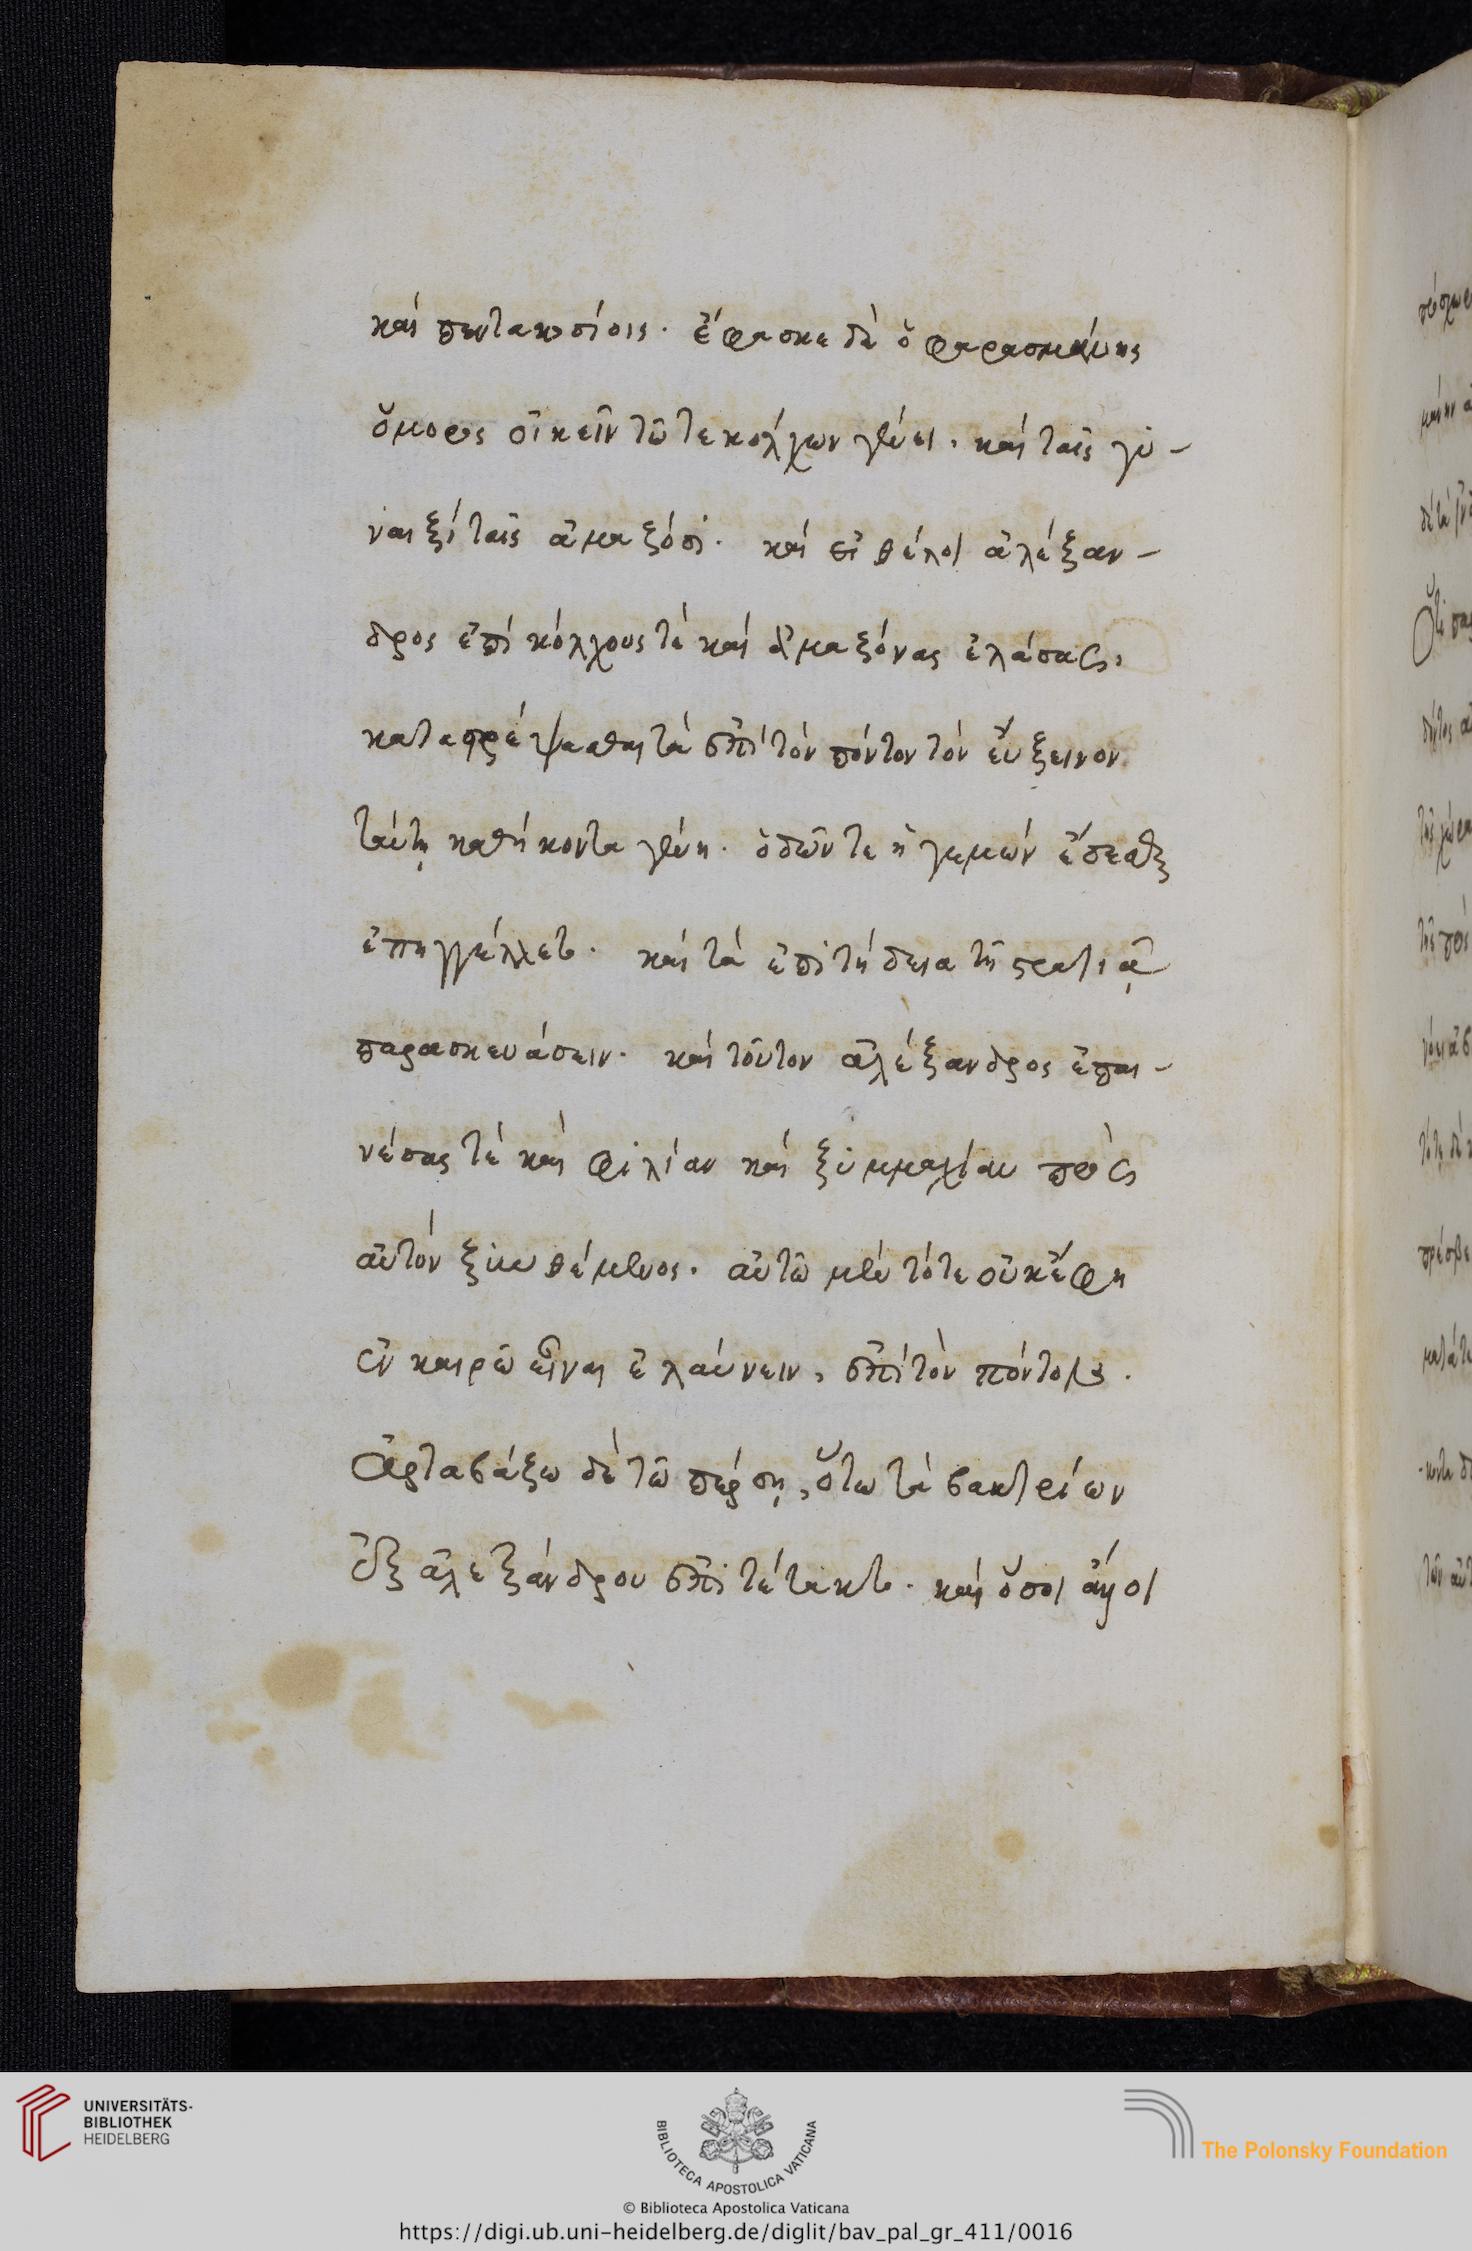 καὶ πεντακοσίοις. ἔφασκε δὲ ὁ φαρασμάνης
ὅμορος οἰκεῖν τῶ τε κολχων γένει. καὶ ταῖς γυ-
ναιξὶ ταῖς ἀμαζόσι. καὶ εἰ θέλοι ἀλέξαν-
δρος ἐπὶ κόλχους τὲ καὶ ἀμαζόνας ἐλάσας,
καταστρέψασθαι τὰ ἐπὶ τὸν πόντον τὸν εὔξεινον
ταύτῃ καθήκοντα γένη. ὁδῶν τε ἡγεμὼν ἔσεσθαι
ἐπηγγέλλετο. καὶ τὰ ἐπιτήδεια τῆ στρατιᾷ
παρασκευάσειν. καὶ τοῦτον ἀλέξανδρος ἐπαι-
νέσας τὲ καὶ φιλίαν καὶ ξυμμαχίαν πρὸς
αὐτὸν ξυνθέμενος. αὐτῶ μὲν τότε οὐκ ἔφη
ἐν καιρῶ εἶναι ἐλαύνειν, ἐπὶ τὸν πόντον.
Ἀρταβάζω δὲ τῶ πέρσῃ, ὅτω τὰ βακτρίων
ἐξ ἀλεξάνδρου ἐπιτέτακτο. καὶ ὅσοι ἄλλοι
UNIVERSITÄTS-
BIBLIOTHEK
HEIDELBERG
BIBLIOTECA APOSTOLICA VATICANA
The Polonsky Foundation
© Biblioteca Apostolica Vaticana
https://digi.ub.uni-heidelberg.de/diglit/bav_pal_gr_411/0016